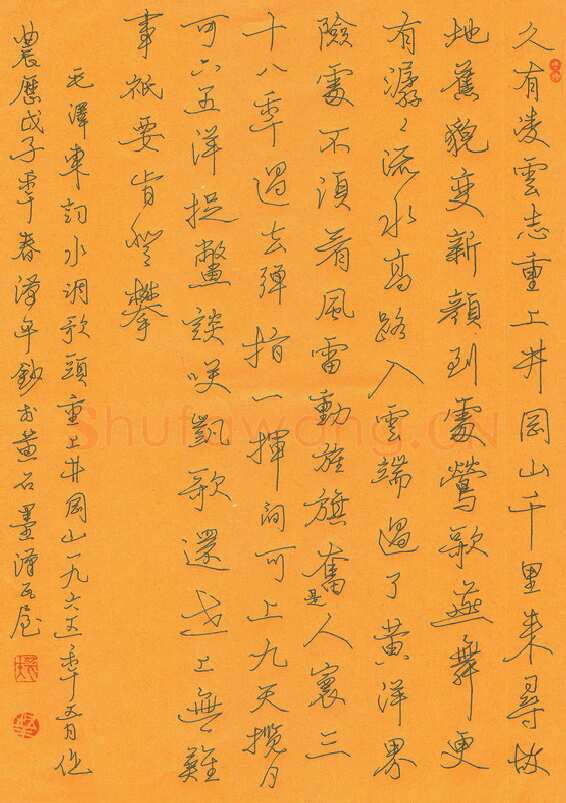 久有凌雲志重上井岡山千里来尋故
地舊貌变新顏到處鶯歌燕舞更
有潺々流水高路入雲端過了黄洋界
險處不須看風雷動旌旗奮是人寰三
十八年過去彈指一揮間可上九天攬月
可下五洋捉鱉談笑凱歌還世上無難
事衹要肯登攀
毛澤東詞水調歌頭重上井岡山一九六五年五月作
農歷戊子年春澤鈔於黄石墨澤瓦屋
Shufawang.CN